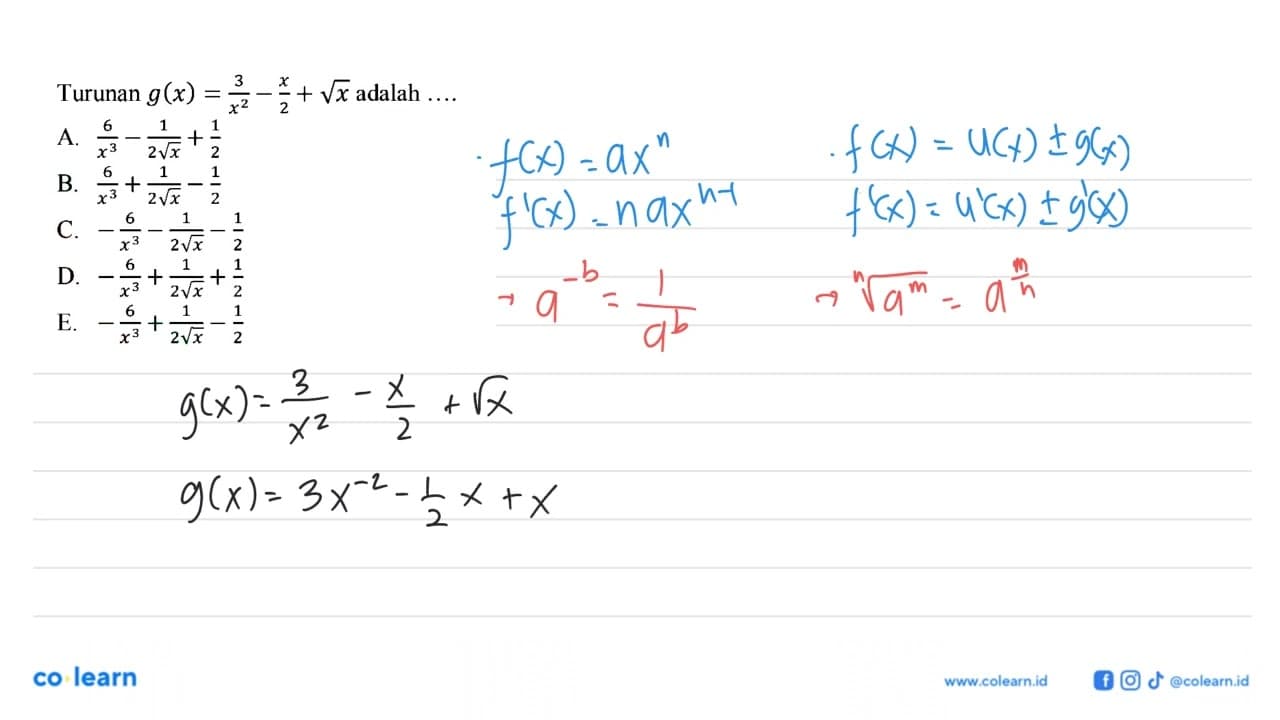 Turunan g(x) = 3/x² − x/2 + √x adalah ....
A. 6/x³ − 1/(2√x) + 1/2
B. 6/x³ + 1/(2√x) − 1/2
C. −6/x³ − 1/(2√x) − 1/2
D. −6/x³ + 1/(2√x) + 1/2
E. −6/x³ + 1/(2√x) − 1/2
· f(x) = axⁿ
f'(x) = naxⁿ⁻¹
· f(x) = u(x) ± g(x)
f'(x) = u'(x) ± g'(x)
→ a⁻ᵇ = 1/aᵇ
→ ⁿ√aᵐ = a^(m/n)
g(x) = 3/x² − x/2 + √x
g(x) = 3x⁻² − 1/2 x + x
co·learn
www.colearn.id
@colearn.id